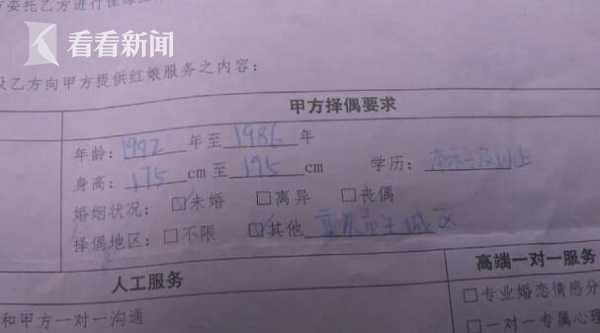 方委托乙方进行
看看新闻
以乙方向甲方提供红娘服务之内容：
甲方择偶要求
年龄：1992年至1986年
身高：175cm至195cm 学历：本科及以上
婚姻状况：☑未婚 □离异 □丧偶
择偶地区：□不限 ☑其他 重庆市主城区
人工服务
高端一对一服务
和甲方一对一沟通
□专业婚恋情感分
□一对一专属心理